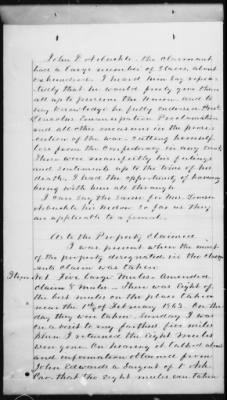 John D. Arbuckle, the claimant
had a large number of slaves, about
one hundred. I heard him say repea-
tedly that he would freely give them
all up to preserve the Union and to
my knowledge he fully endorsed Pres.
Lincolns Emancipation Proclamation
and all other measures in the prose-
cution of the war. Getting
from the Confederacy in any
These were manifestly his feelings
and sentiments up to the time of his
death. I had the opportunity of having
being with him all through
I can say the same for Mrs. Louisa
Arbuckle his widow so far as they
are applicable to a female.
As to the Property Claimed.
I was present when the most
of the property designated in the
and claim was taken
Item No 1 Five large Mules. Amended
claim 8 Mules. There was eight of
the best mules on the place taken
near the 1st of February 1863. On the
day they were taken, Sunday I was
on a visit to my father five miles
When I returned the eight mules
were gone. On hearing it talked about
and information obtained from
John Edwards a Sargent of 1st Ark
Cav. that the eight mules were taken